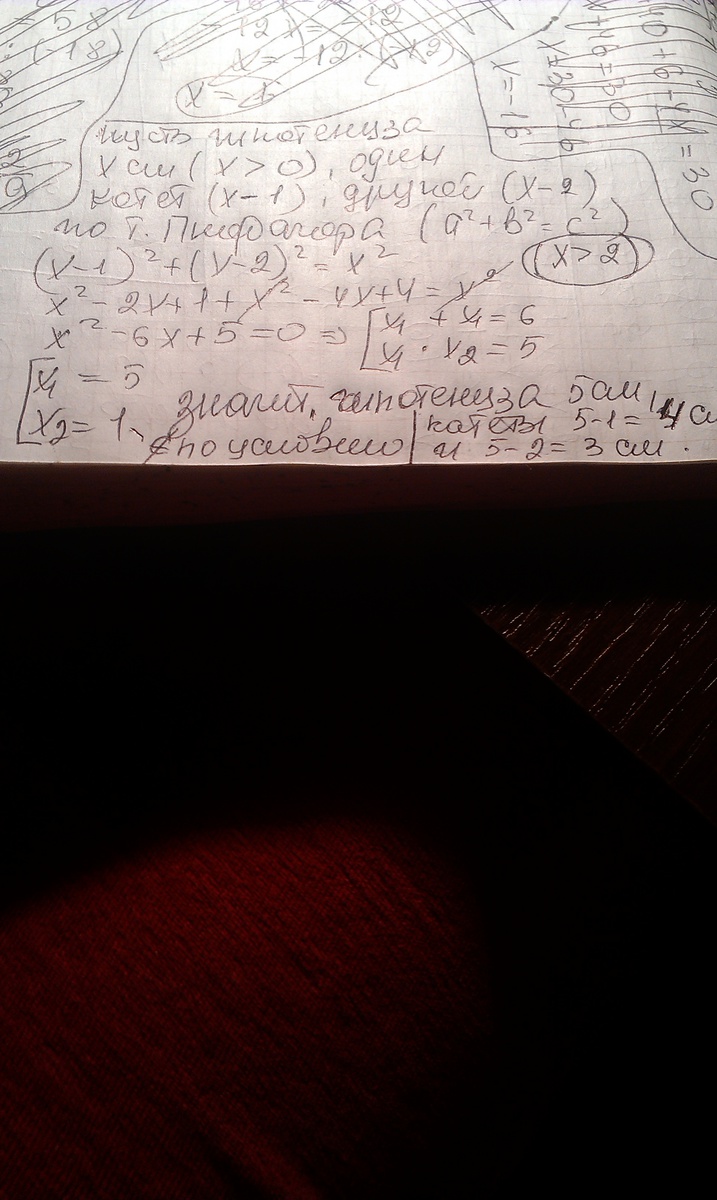 × 58
(-18)
- 12 x = -12
x = -12 · (-x2)
x = 1
x + 46 = 30
x = 30 - 46
x = -16
10 + 6 - 4x = 30
пусть гипотенуза
x см (x > 0), один
катет (x-1), другой (x-2)
по т. Пифагора (a² + b² = c²)
(x-1)² + (x-2)² = x²
(x > 2)
x² - 2x + 1 + x² - 4x + 4 = x²
x² - 6x + 5 = 0 => [x1 + x1 = 6
x1 · x2 = 5
[x1 = 5
x2 = 1,
∉ по условию
значит, гипотенуза 5 см,
катеты 5-1 = 4 см
и 5-2 = 3 см.